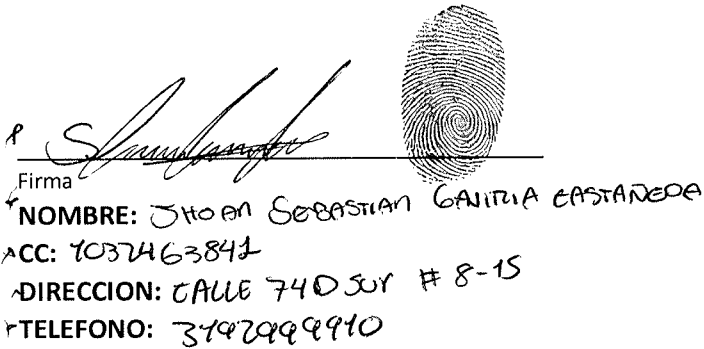 Firma
NOMBRE: JHOAN SEBASTIAN GAVIRIA CASTAÑEDA
CC: 1032463841
DIRECCION: CALLE 74D SUR # 8-15
TELEFONO: 3192999910